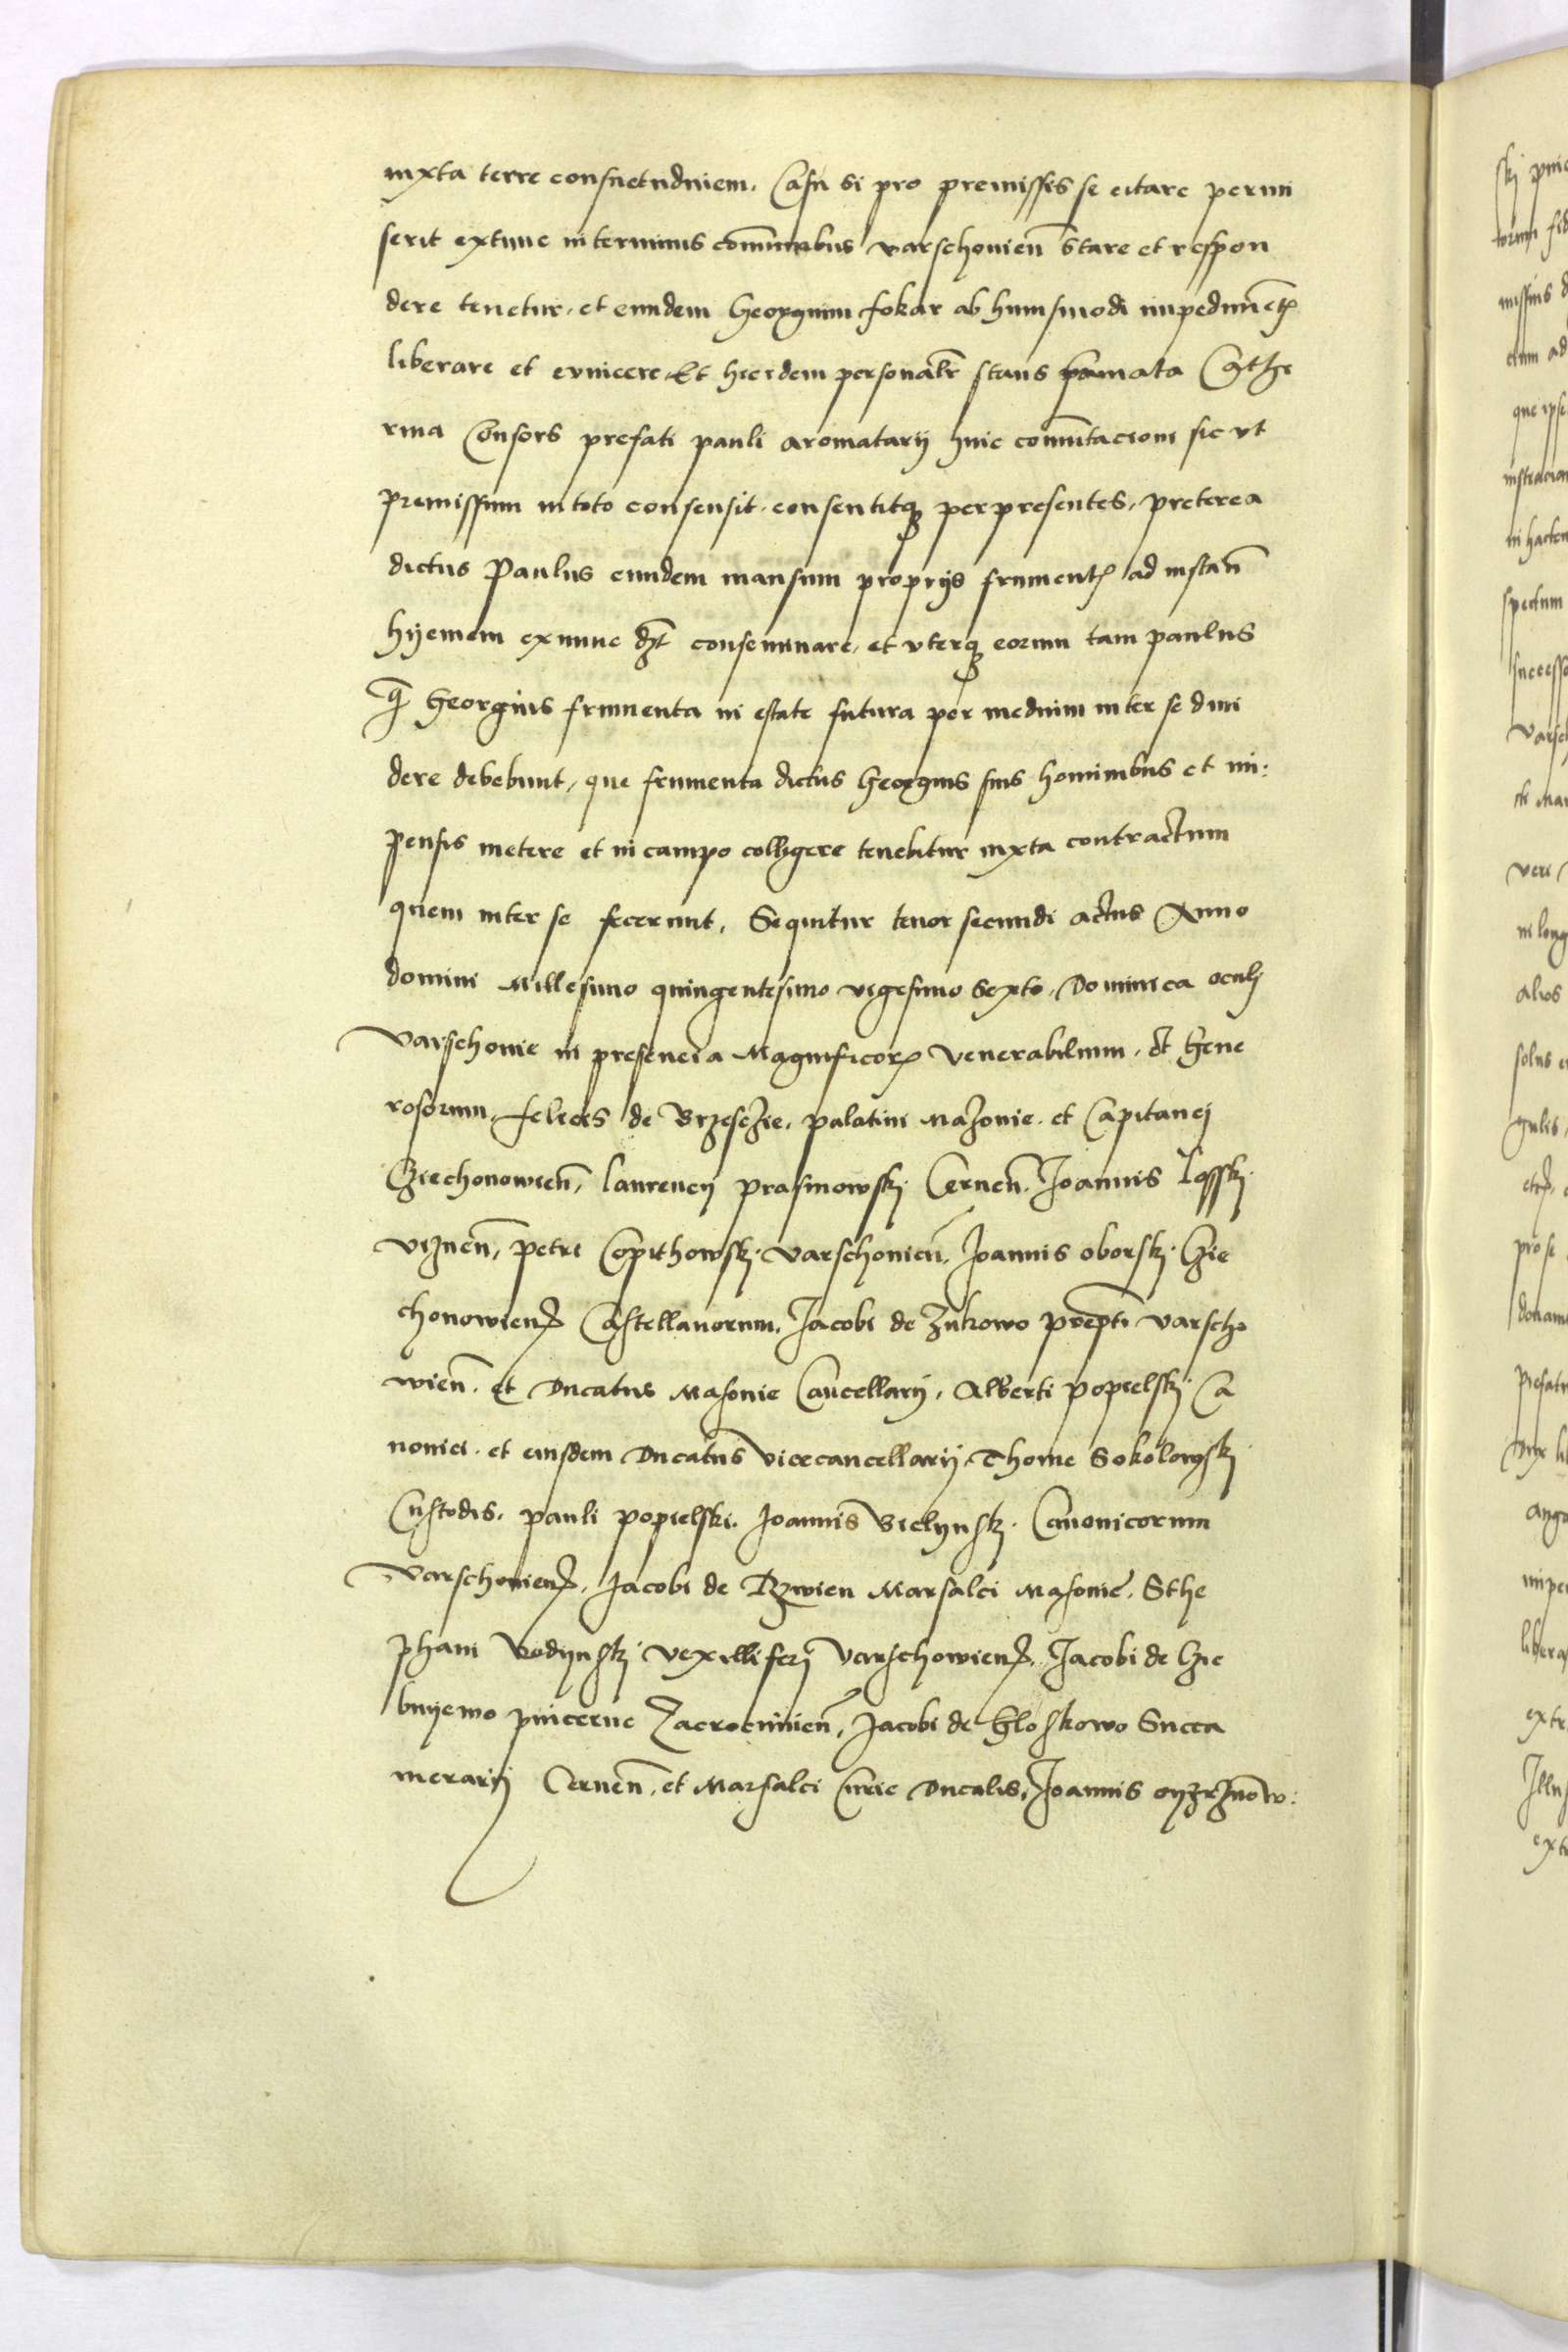 iuxta terre consuetudinem. Casu si pro premissis se citare permi
serit extunc in terminis com̄unibus varschovien̄ Stare et respon
dere tenetur. et eundem Georgium fokar ab huiusmodi impediment
liberare et evincere. Et hic idem personalr̄ stans p̄nominata Cathe
rina Consors prefati pauli aromatarij huic com̄utacioni sic vt
premissum in toto consensit. consentitq perpresentes, preterea
dictus Paulus eundem mansum proprijs frument ad instan̄
hyemem ex nunc d consemminare, et vterq eorum tam paulus
q̄ Georgius frumenta in estate futura per medium inter se divi
dere debebunt, que frumenta dictus Georgius suis hominibus et im:
pensis metere et in campo colligere tenebitur iuxta contractum
quem inter se fecerunt. Sequitur tenor secundi actus Anno
domini Millesimo quingentesimo vigesimo Sexto. Dominica oculj
Varschovie in presencia Magnificor Venerabilium. et Gene
rosorum. felicis de Brzesczie. palatini Mazovie. et Capitanej
Cziechonowien̄, laurencij prasmowskj Cernen̄. Joannis lossky
viznen̄, petri Copithowskj varschovien̄. Joannis oborskj. Czie
chonowien Castellanorum. Jacobi de zukowo prepti varscho
wien̄. et Ducatus Masovie Cancellarij, Alberti popielskj Ca
nonici. et eiusdem Ducatus Vicecancellarij. Thome Sokolowskj
Custodis. pauli popielski. Joannis Bielynskj. Canonicorum
Varschovien, Jacobi de Dzwien Marsalci Masovie. Sthe
phani Wodynskj vexilliferj Varschowien. Jacobi de Czie
bnyewo pincerne Zacrocimien̄, Jacobi de Gloskowo Succa
merarij Cernen̄. et Marsalci Curie Ducalis. Joannis oyrzanow: